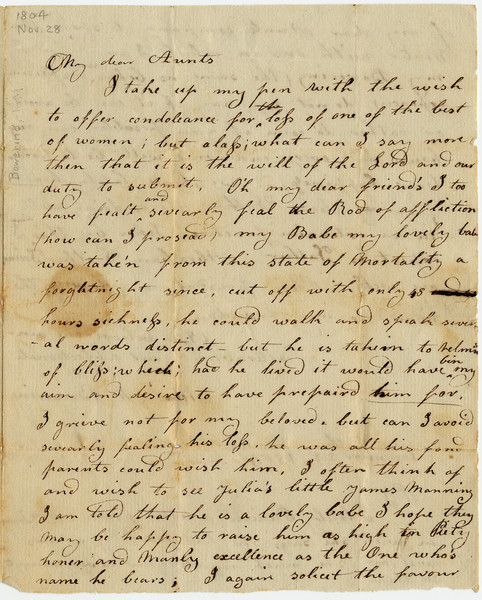 1804
Nov. 28
My dear Aunts
I take up my pen with the wish
to offer condoleance for the loss of one of the best
of women; but alass; what can I say more
then that it is the will of the Lord and our
duty to submit. Oh my dear friends I too
have fealt, and sevearly feal the Rod of affliction
(how can I prosead) my Babe my lovely babe
was take'n from this state of Mortality a
forghtnight since, cut off with only 48
hours sickness, he could walk and speak sever
-al words distinct but he is takein to
of bliss; which; had he lived it would have bin my
aim and desire to have prepaird him for.
I grieve not for my beloved. but can I avoid
sevearly fealing his loss. he was all his fond
parents could wish him. I often think of
and wish to see Julia's little James Manning
I am told that he is a lovely babe I hope they
may be happy to raise him as high in Piety
honer and Manly excellence as the One who's
name he bears; I again solicet the favour